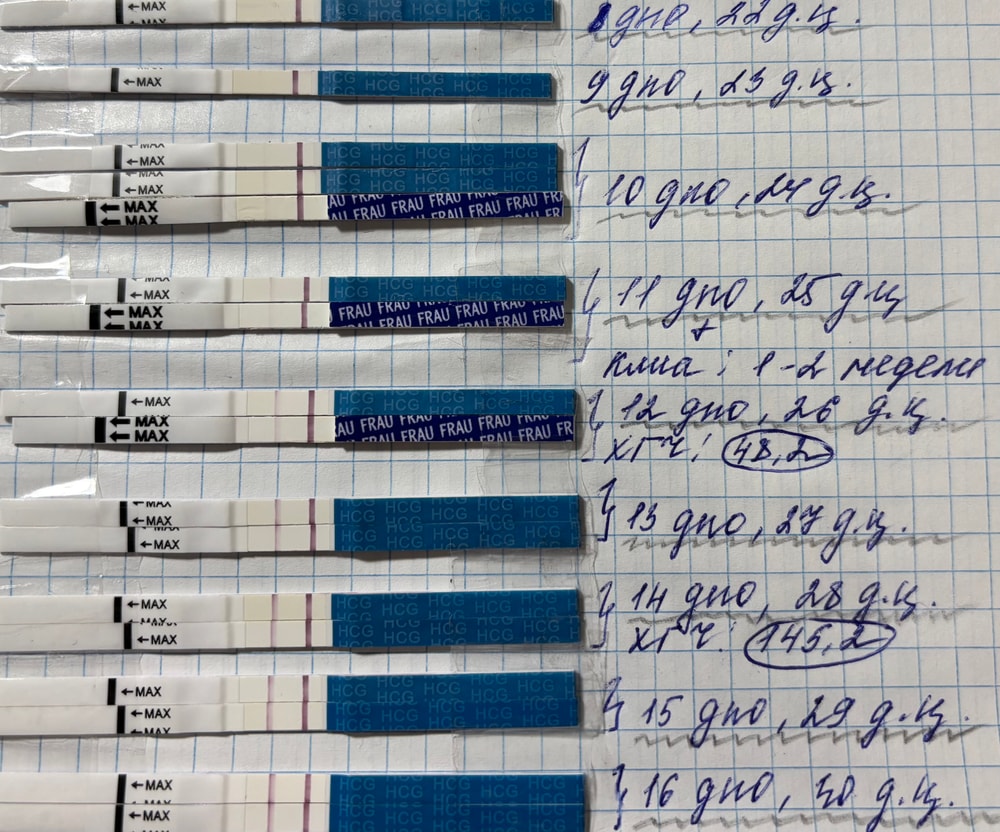 ←MAX
8 дпо, 22 д.ц.
←MAX
HCG HCG HCG HCG
9 дпо, 23 д.ц.
←MAX
←MAX
HCG HCG HCG HCG
←MAX
←MAX
FRAU FRAU FRAU FRAU FRAU
10 дпо, 24 д.ц.
←MAX
←MAX
HCG HCG HCG HCG
←MAX
←MAX
FRAU FRAU FRAU FRAU FRAU
11 дпо, 25 д.ц
+
клиа: 1-2 недели
←MAX
HCG HCG HCG HCG
12 дпо, 26 д.ц.
←MAX
←MAX
FRAU FRAU FRAU FRAU FRAU
ХГЧ: 48,2
←MAX
←MAX
HCG HCG HCG HCG
←MAX
13 дпо, 27 д.ц.
←MAX
HCG HCG HCG HCG
14 дпо, 28 д.ц.
←MAX
HCG HCG HCG HCG
ХГЧ: 145,2
←MAX
HCG HCG HCG HCG
←MAX
15 дпо, 29 д.ц.
←MAX
HCG HCG HCG HCG
←MAX
16 дпо, 30 д.ц.